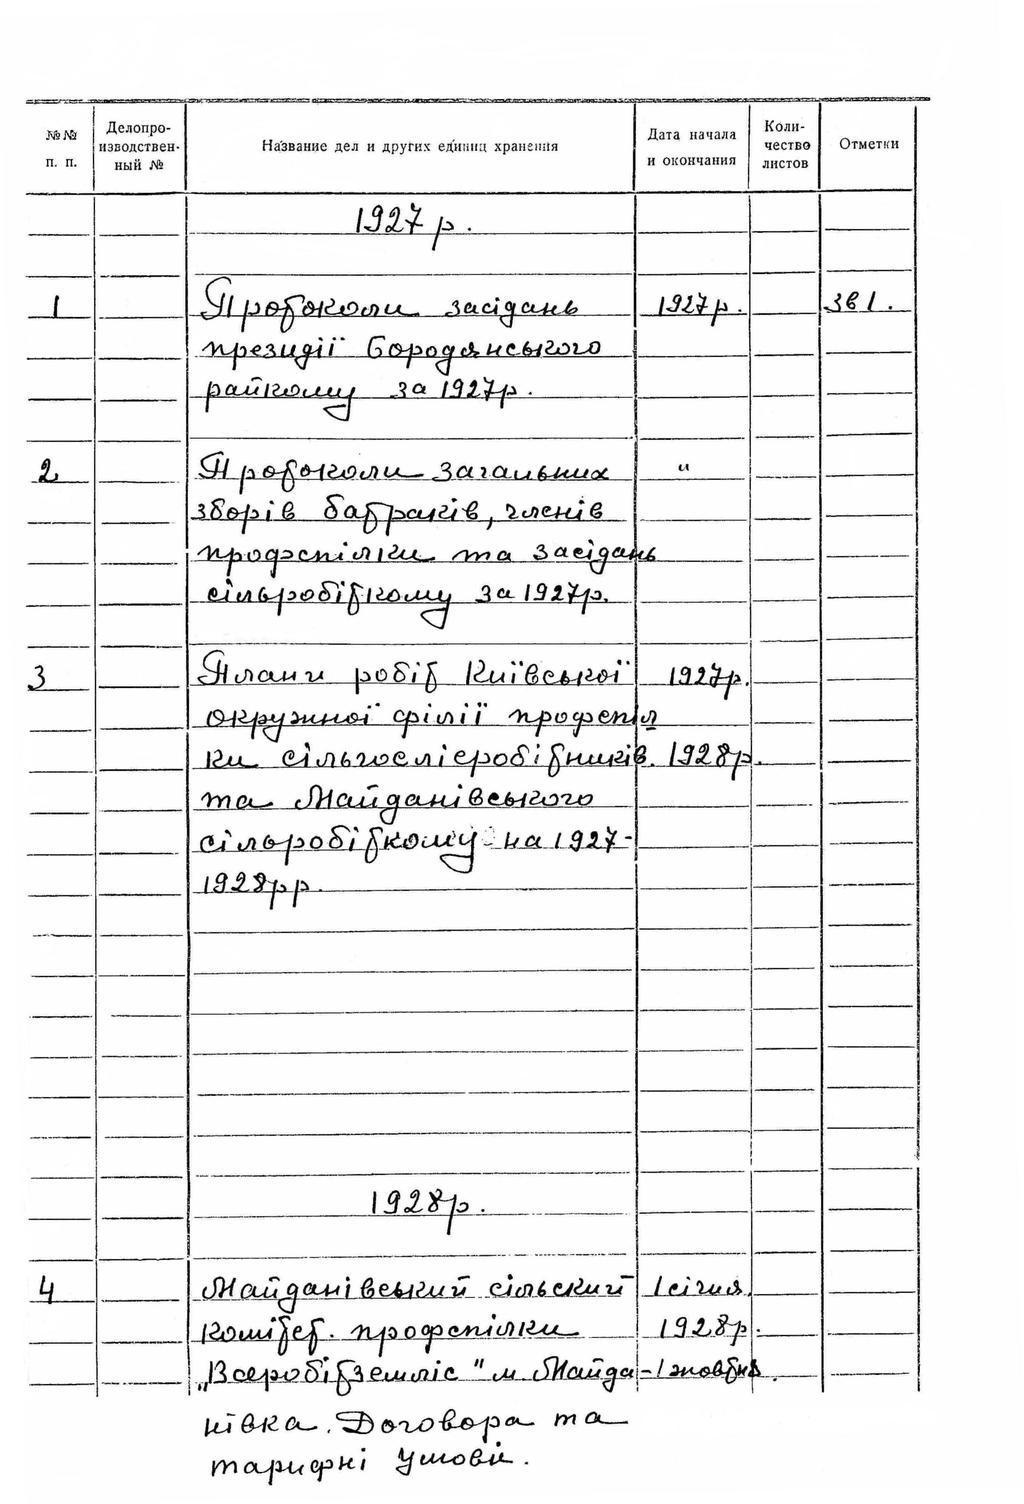 №№ п. п.
Делопро-изводствен-ный №
Название дел и других единиц хранения
Дата начала и окончания
Коли-чество листов
Отметки
1927 р.
1 Протоколи засідань 1927р. Зв 1.
президії Бородянського
райкому за 1927р.
2 Протоколи загальних "
зборів батраків, членів
профспілки та засідань
сільробіткому за 1927р.
3 Плани робіт Київської 1927р.
окружної філії профспіл
ки сільгосплісробітників. 1928р.
та Майданівського
сільробіткому на 1927-
1928рр.
1928р.
4 Майданівський сільский 1 січня
комітет. профспілки 1928р.
„Всеробітземліс" м Майда- 1 жовтня
нівка. Договора та
тарифні умови.